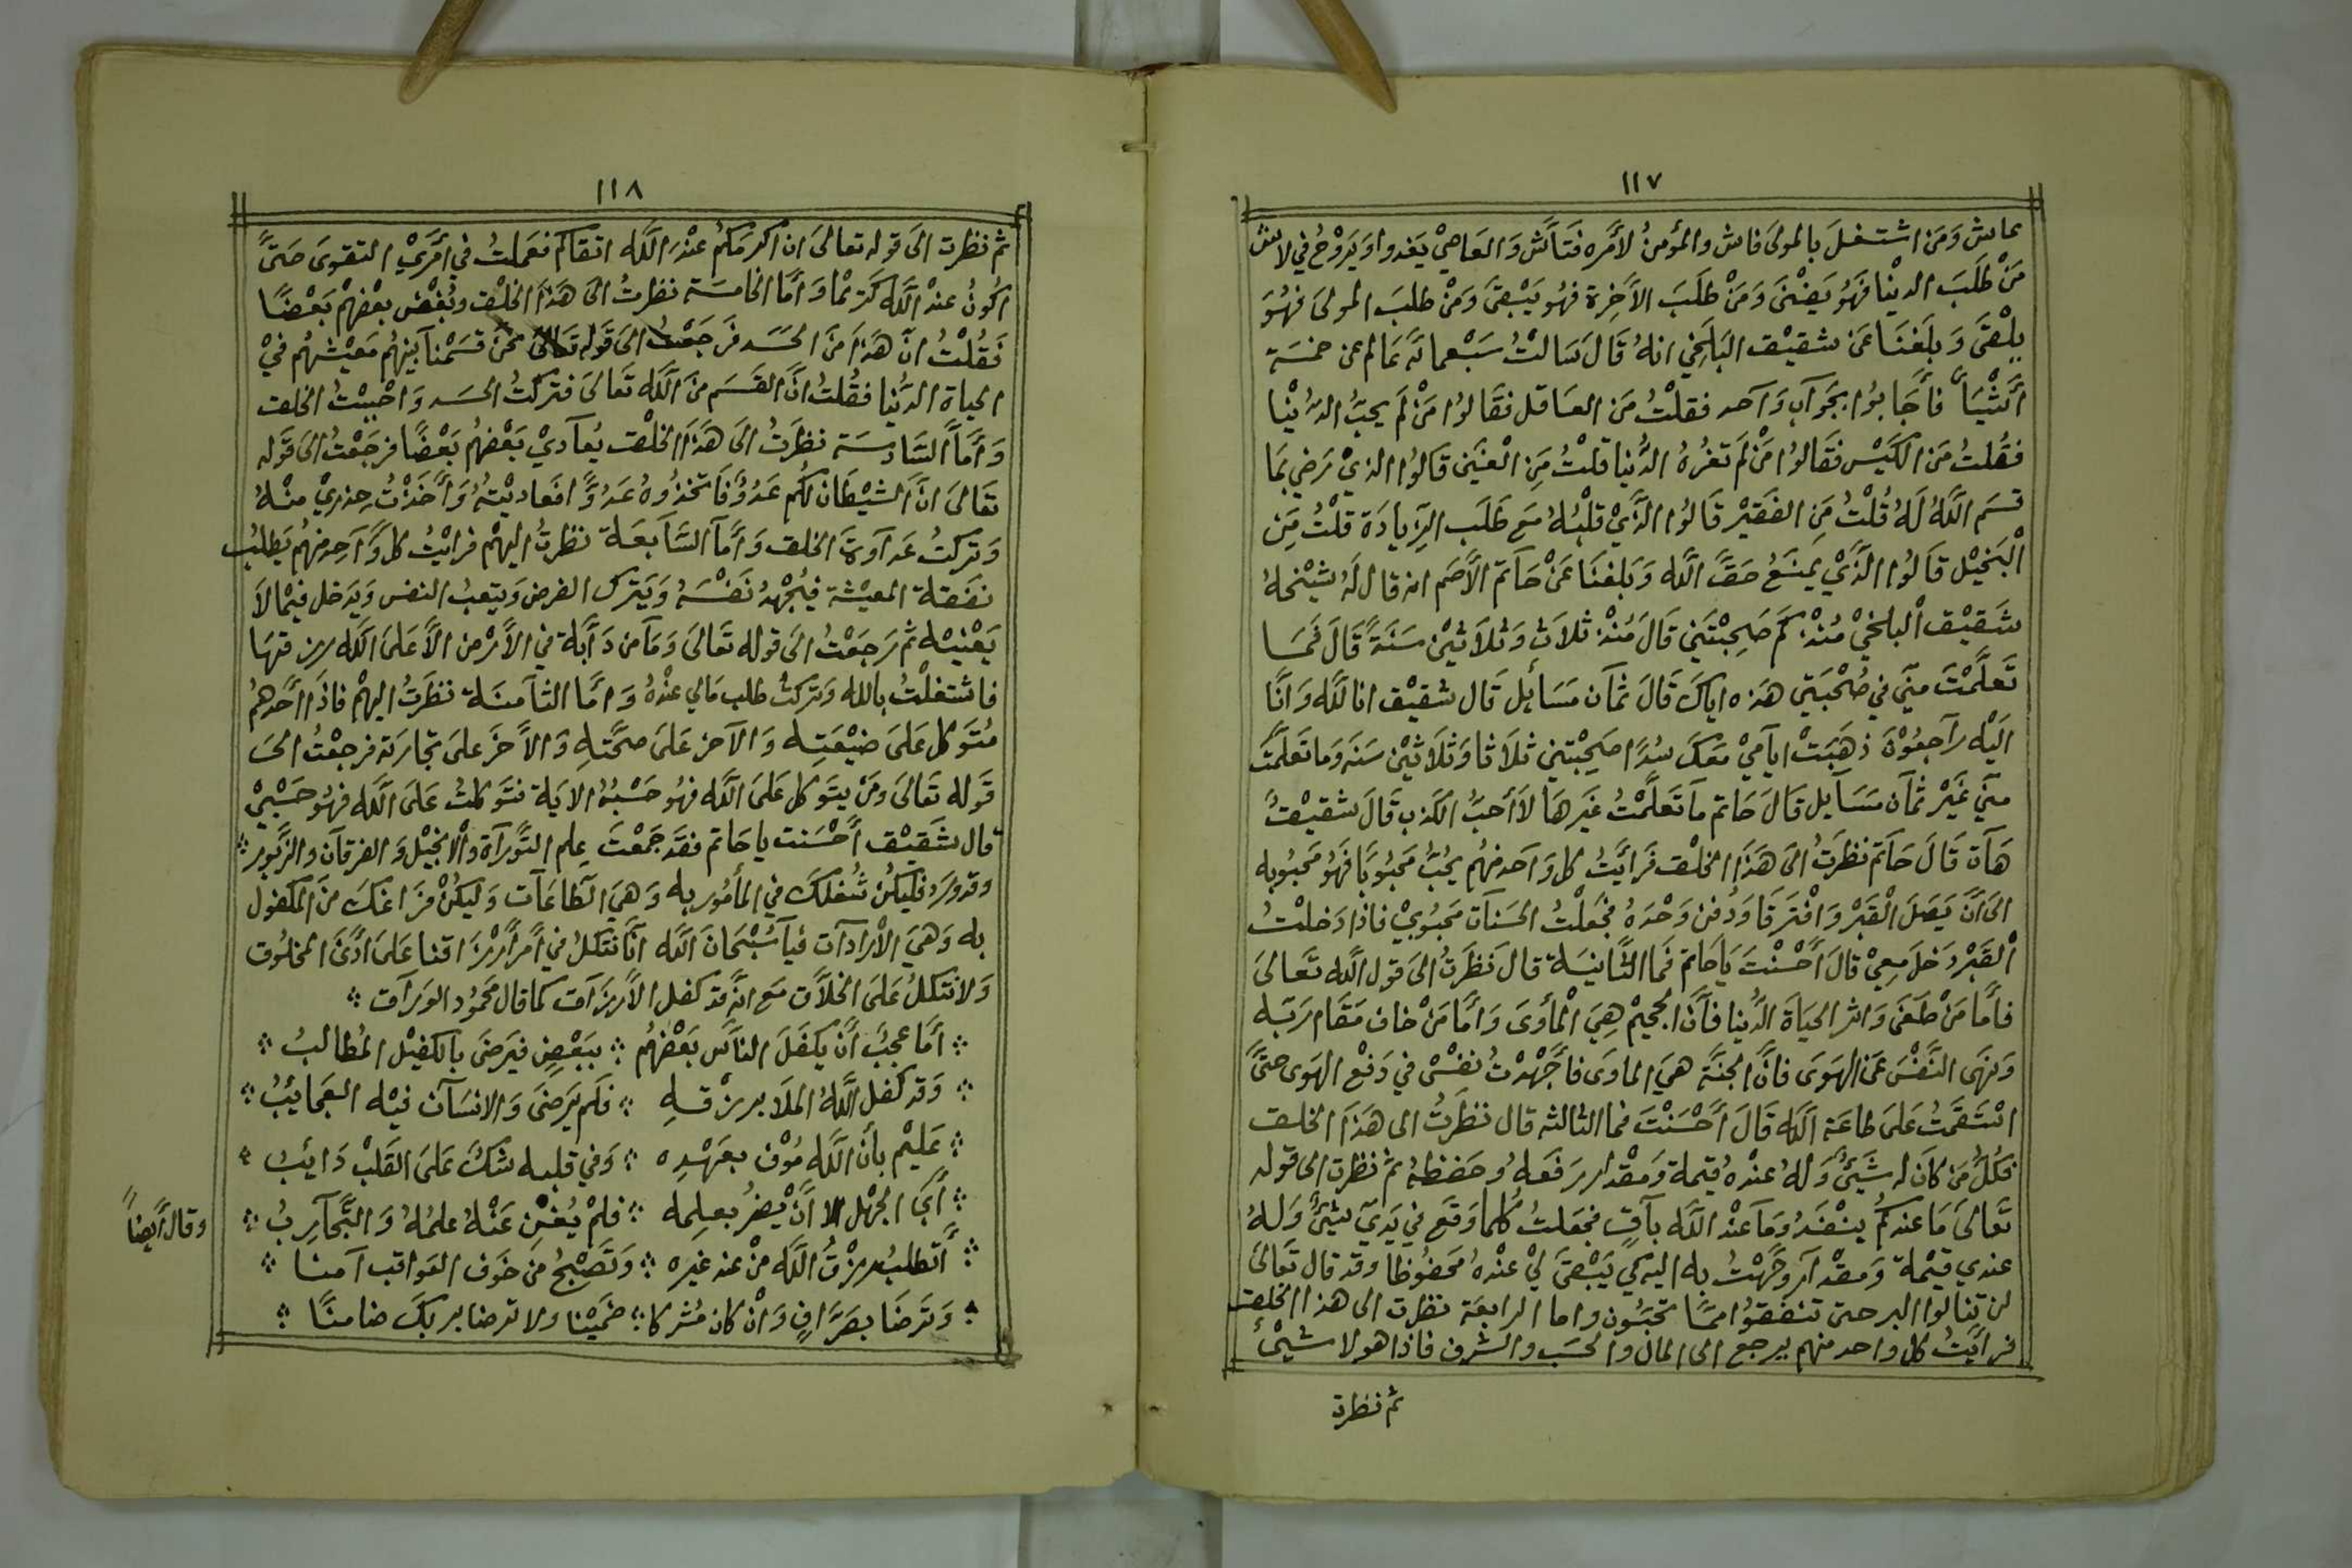 ١١٧
عاش وَمَن اشتغلَ بالمولىَ فاش والمؤمنُ لأمْره فَتَّاش وَالعَاصِيْ يَغدوا وَيَروْحُ في لاش
مَنْ طَلَبَ الدنْيا فَهُو يَفْنىَ وَمَنْ طَلَبَ الأَخِرة فهُو يَبْقىَ وَمَنْ طلبَ المولىَ فهُوَ
يلْقىَ وَبلَغنَا عَن شقيْق البَلَخِي انهُ قَالَ سَالتُ سَبْعمائَة عَالم عن خمسَة
أشْيَا فأَجَابوُا بجَوآب وَآحد فقلتُ مَن العَاقل فقَالوُا مَنْ لَم يحبُّ الدُنْيا
فقُلتُ مَن الكَيّس فقَالوُا مَنْ لَم تغرُهُ الدُّنيا قلتُ مَنِ الْغنَي قاَلوُا الذيْ رَضي بمَا
قسَم اللَّهُ لهُ قُلْتُ مَنِ الفَقيْر قَالوُا الذَّيْ قلْبُهُ مَع طَلَب الزّيادَة قلْتُ مَنِ
الْبَخيْل قاَلوُا الذَّيْ يمنَعُ حَقَّ اللَّه وَبَلغنَا عَنْ حَاتَم الأَصَم انه قال لَهُ شيْخهُ
شَقيْق الْبلخيْ مُنْذ كَم صَحِبْتَني قَالَ مُنْذ ثلاَث وَثلاَثيْن سَنَةً قَالَ فَمَا
تَعلَّمْتَ منّي في صُحْبَتي هَذه اياكَ قَالَ ثمَان مَسَائِل قَال شقيْق انا للَّه وَانَّا
الَيْه رآجعُوْنَ ذهَبَتْ ايآميْ مَعكَ سُدًا صَحِبْتني ثلاَثا وَثلاَثيْن سَنَه وَما تعَلَّمتَ
منّي غَيْر ثمَّان مَسَآيل قاَلَ حَاتم مَا تَعلَّمْتُ غَيرهَا لاَ أحبُّ الكَذب قَالَ شقيْقُ
هَآت قَالَ حَآتم نظَرتُ الىَ هَذَا الخلْق فَرايَتُ كل وَاحد منهُم يحُبُّ مَحبُوبَا فَهُو مَحبُوبه
الىَ أنَّ يَصَلَ القَبْر وَافْترَقا وَدُفن وَحْدَهُ فجَعلْتُ الحَسَنآت مَحبُوبيْ فاذا دَخلتُ
الْقَبْر دَخلَ معِيْ قالَ أحْسَنْتَ يَاحَاتم فَما الثَّانيَة قال نَظَرتُ الىَ قول اللَّه تَعالىَ
فامَّا مَنْ طَغَى وَاثر الحيَاةَ الدُّنيا فانَّ الجحيْم هِيَ الْمأوىَ وَأمَّا مَنْ خاف مَقَام رَبّه
وَنهىَ النَّفْسَ عَن الهَوىَ فانَّ الجنَّة هيَ الماوىَ فأجْهَدْتُ نفِسْي في دَفْع الهَوىَ حتىَّ
اسْتَقَمتُ عَلىَ طاعَة اللَّه قَالَ أحْسَنْتَ فما الثالثه قال نظَرتُ الى هَذَا الخلق
فكلُ مَن كانَ له شَيَئٌ وَلهُ عنْدهُ قيمة وَمقْدار رَفعَهُ وحَفظهُ ثمَّ نظرت الى قوله
تَعالىَ مَا عندكُم ينْفَدُ وَمَا عنْد اللَّه بآقٍ فجَعلتُ كلما وَقَع في يَديَّ شيْئٌ وَلهُ
عندي قيْمة وَمقْدآر وَجَّهْتُ به اليه كي يَبْقىَ ليْ عنْدهُ مَحفُوظا وقد قال تَعَالىَ
لن تنالوا البر حتى تنفقوُا ممَّا تحبَّون واما الرابعَة نظرت الى هذا الخلق
فرأيَتُ كل واحد منهم يرجع الى المال والحسَب والشرف فاذا هو لا شيْئ
ثم نظرة
١١٨
ثم نظرت الىَ قوله تعالىَ ان اكرمَكمُ عنْدَ اللَّه اتقاكم فعَملتُ في أمْريْ التقوىَ حَتىَّ
اكوُنُ عنْد اللَّه كَريْما وَأمَّا الخامسَة نظرتُ الىَ هَذَا الخلْق وبُغْض بعْضِهمْ بَعْضًا
فَقُلتُ انَّ هَذَا مَنَ الحَسَد فَرجَعْتُ الىَ قَوله تعَالىَ نحَنُ قسَمْنَا بينهُم مَعيْشَتهُم فيْ
الحياة الدُّنيا فقُلتُ انَّ القسَم منَ اللَّه تَعالىَ فتركْتُ الحسَد وَاحْببْتُ الخلق
وَأمَّا السَّادسَة نظَرَتُ الىَ هَذَا الخلْق يُعآديْ بَعْضهُم بَعْضًا فرجَعْتُ الىَ قَوله
تعَالىَ انَّ الشيْطَان لكُم عَدُوٌ فَاتخذُوهُ عَدُوًّا فعَاديْتهُ وَأَخَذْتُ حِذريْ منْهُ
وَتركتُ عَدآوة الخلق وَأمَّا السَّابعَة نظرتُ اليهْم فرايْتُ كل وَآحِد منهُم يَطلبُ
نفَقة المعيْشة فيُجْهِدُ نَفْسَهُ وَيَتركُ الفرض وَيتعبُ النفس وَيَدخل فيْما لاَ
يَعْنيْه ثمَّ رَجَعْتُ الىَ قوله تَعَالىَ وَمَا من دَآبَة في الأَرْض الاَّ عَلىَ اللَّه رزقهَا
فاشتغلْتُ بالله وَتركتُ طلب مَالي عنْدهُ وَامَّا الثَّآمنَة نظَرَتُ اليهمْ فاذَا أحَدهمُ
مُتَوكل عَلىَ ضيْعَتِه وَالآخرَ عَلىَ صحَّتِهِ وَالاَخرَ عَلىَ تجَارَته فرجعْتُ الىَ
قَوله تَعالىَ وَمَنْ يتَوكل عَلىَ اللَّه فهُو حَسْبُهُ الايَة فتَوكلتُ عَلىَ اللَّه فهُو حَسْبيْ
قال شَقيْق أحْسَنت ياحَاتم فقَد جَمَعْتَ علم التَّورآة وَالأنجيْل وَالفرقآن والزَّبور
وقد وَرَد فليكنُ شُغلكَ في المأموُر به وَهيَ الطَّاعَآت وَليكنْ فرَاغكَ منَ المكفول
به وَهيَ الأرْادآت فيآ سُبْحَانَ اللَّه انَّا نَتكلُ في أمْر أرْزَاقنا عَلىَ ادْنىَ المخلُوق
وَلا نتكلُ عَلىَ الخلاَّق مَع انهُ قد كفل الأرزآق كما قال محمُود الورآق
أمَا عجبٌ أنَّ يكفلَ النَّاس بَعْضهُم ۞ ببَعْضٍ فيرَضىَ بالكفيْل المُطالبُ
وَقد كفل اللَّهُ الملاَ برزْقهِ ۞ فلَم يَرضىَ وَالانسَآن فيْه العجَايبُ
عَليْم بأنَّ اللَّه مُوْفٍ بعَهْدِه ۞ وَفي قلبه شكٌ عَلىَ القَلبْ دَايبُ
أبىَ الجهْل الا أنْ يضرُ بعلِمه ۞ فلَمْ يُغْن عَنْهُ علمُهُ وَالتَّجآربُ
وقال أيضاً
أتطلبُ رزْقُ اللَّه منْ عند غيره ۞ وَتَصْبحُ منَ خَوف العَواقب آمنا
وَتَرضَا بصَرَّافٍ وَانْ كان مُشركا ۞ ضَميْنا ولا ترضا بربكَ ضامنًا